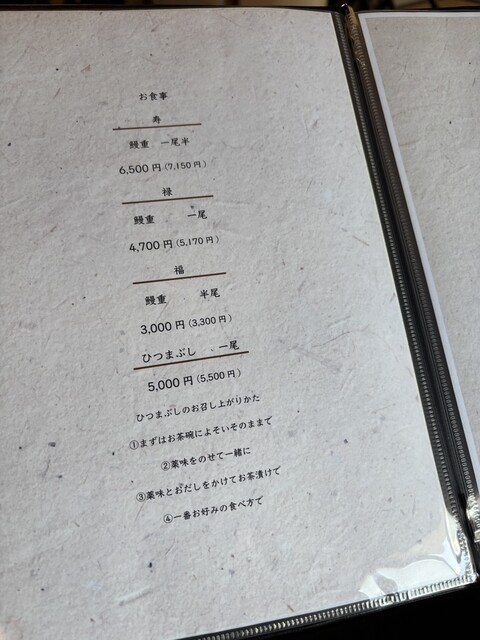 お食事
寿
鰻重 一尾半
6,500円(7,150円)
禄
鰻重 一尾
4,700円(5,170円)
福
鰻重 半尾
3,000円(3,300円)
ひつまぶし 一尾
5,000円(5,500円)
ひつまぶしのお召し上がりかた
①まずはお茶碗によそいそのままで
②薬味をのせて一緒に
③薬味とおだしをかけてお茶漬けで
④一番お好みの食べ方で